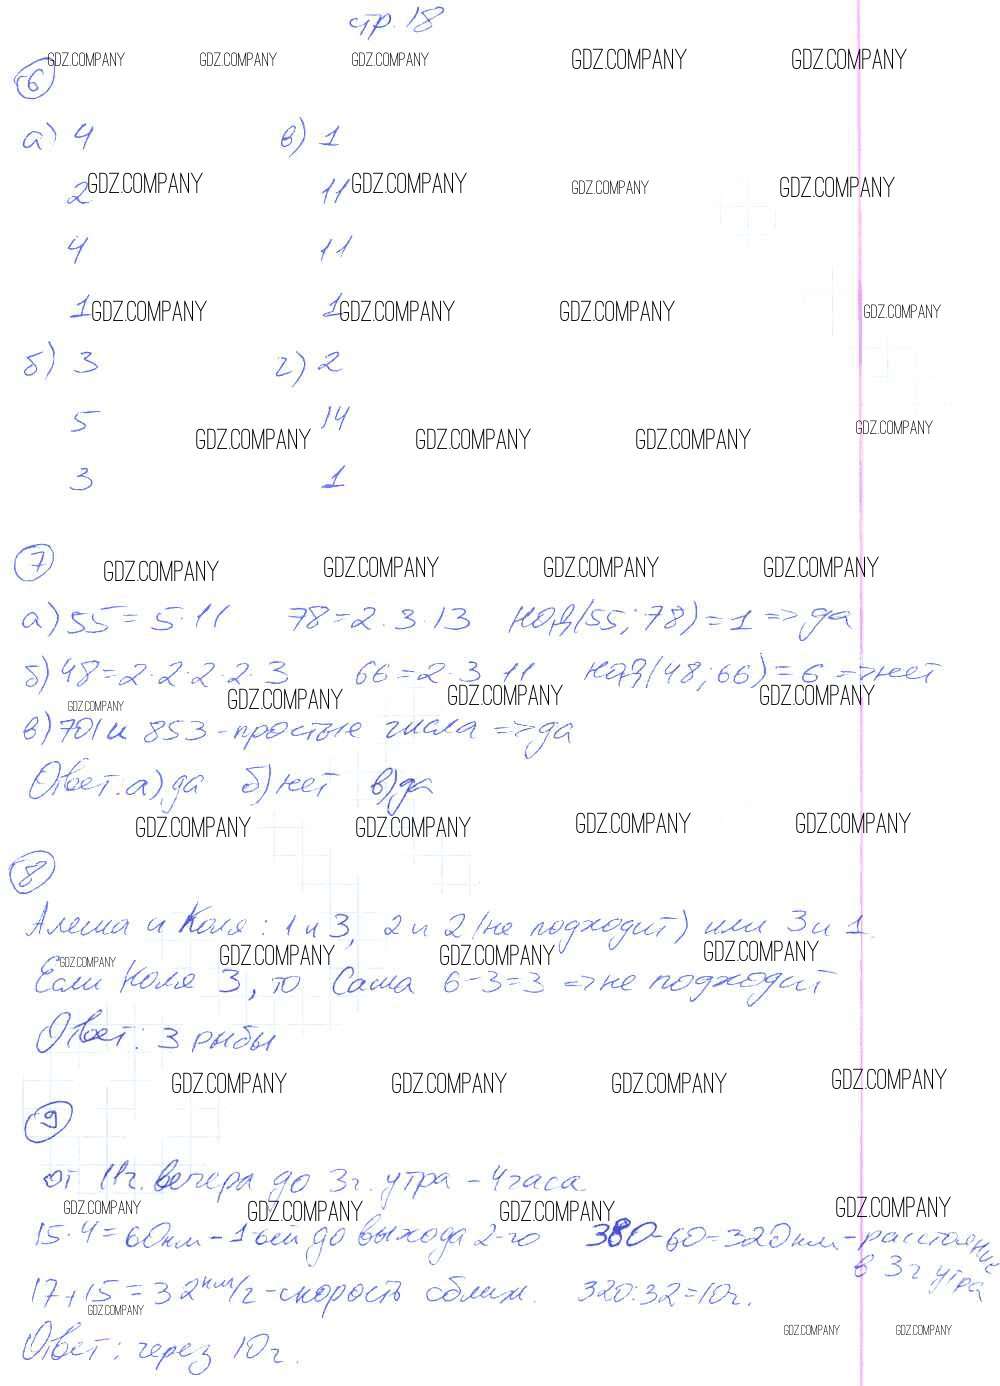 стр. 18
GDZ.COMPANY GDZ.COMPANY GDZ.COMPANY GDZ.COMPANY GDZ.COMPANY
6
а) 4 в) 1
2 GDZ.COMPANY 11 GDZ.COMPANY GDZ.COMPANY GDZ.COMPANY
4 11
1 GDZ.COMPANY 1 GDZ.COMPANY GDZ.COMPANY GDZ.COMPANY
б) 3 г) 2
5 14
GDZ.COMPANY GDZ.COMPANY GDZ.COMPANY GDZ.COMPANY
3 1
7
GDZ.COMPANY GDZ.COMPANY GDZ.COMPANY GDZ.COMPANY
а) 55=5·11 78=2·3·13 НОД(55;78)=1=>да
б) 48=2·2·2·2·3 66=2·3 11 НОД(48;66)=6=>нет
GDZ.COMPANY GDZ.COMPANY GDZ.COMPANY GDZ.COMPANY
в) 701 и 853-простые числа=>да
Ответ: а) да б) нет в) да
GDZ.COMPANY GDZ.COMPANY GDZ.COMPANY GDZ.COMPANY
8
Алеша и Коля: 1 и 3, 2 и 2 (не подходит) или 3 и 1.
GDZ.COMPANY GDZ.COMPANY GDZ.COMPANY GDZ.COMPANY
Если Коля 3, то Саша 6-3=3 =>не подходит
Ответ: 3 рыбы
GDZ.COMPANY GDZ.COMPANY GDZ.COMPANY GDZ.COMPANY
9
от 11ч. вечера до 3ч. утра - 4часа.
GDZ.COMPANY GDZ.COMPANY GDZ.COMPANY GDZ.COMPANY
15·4=60км-1-ый до выхода 2-го 380-60=320км-расстояние
в 3ч утра
17+15=32км/ч-скорость сближ. 320:32=10ч.
GDZ.COMPANY GDZ.COMPANY GDZ.COMPANY
Ответ: через 10ч.